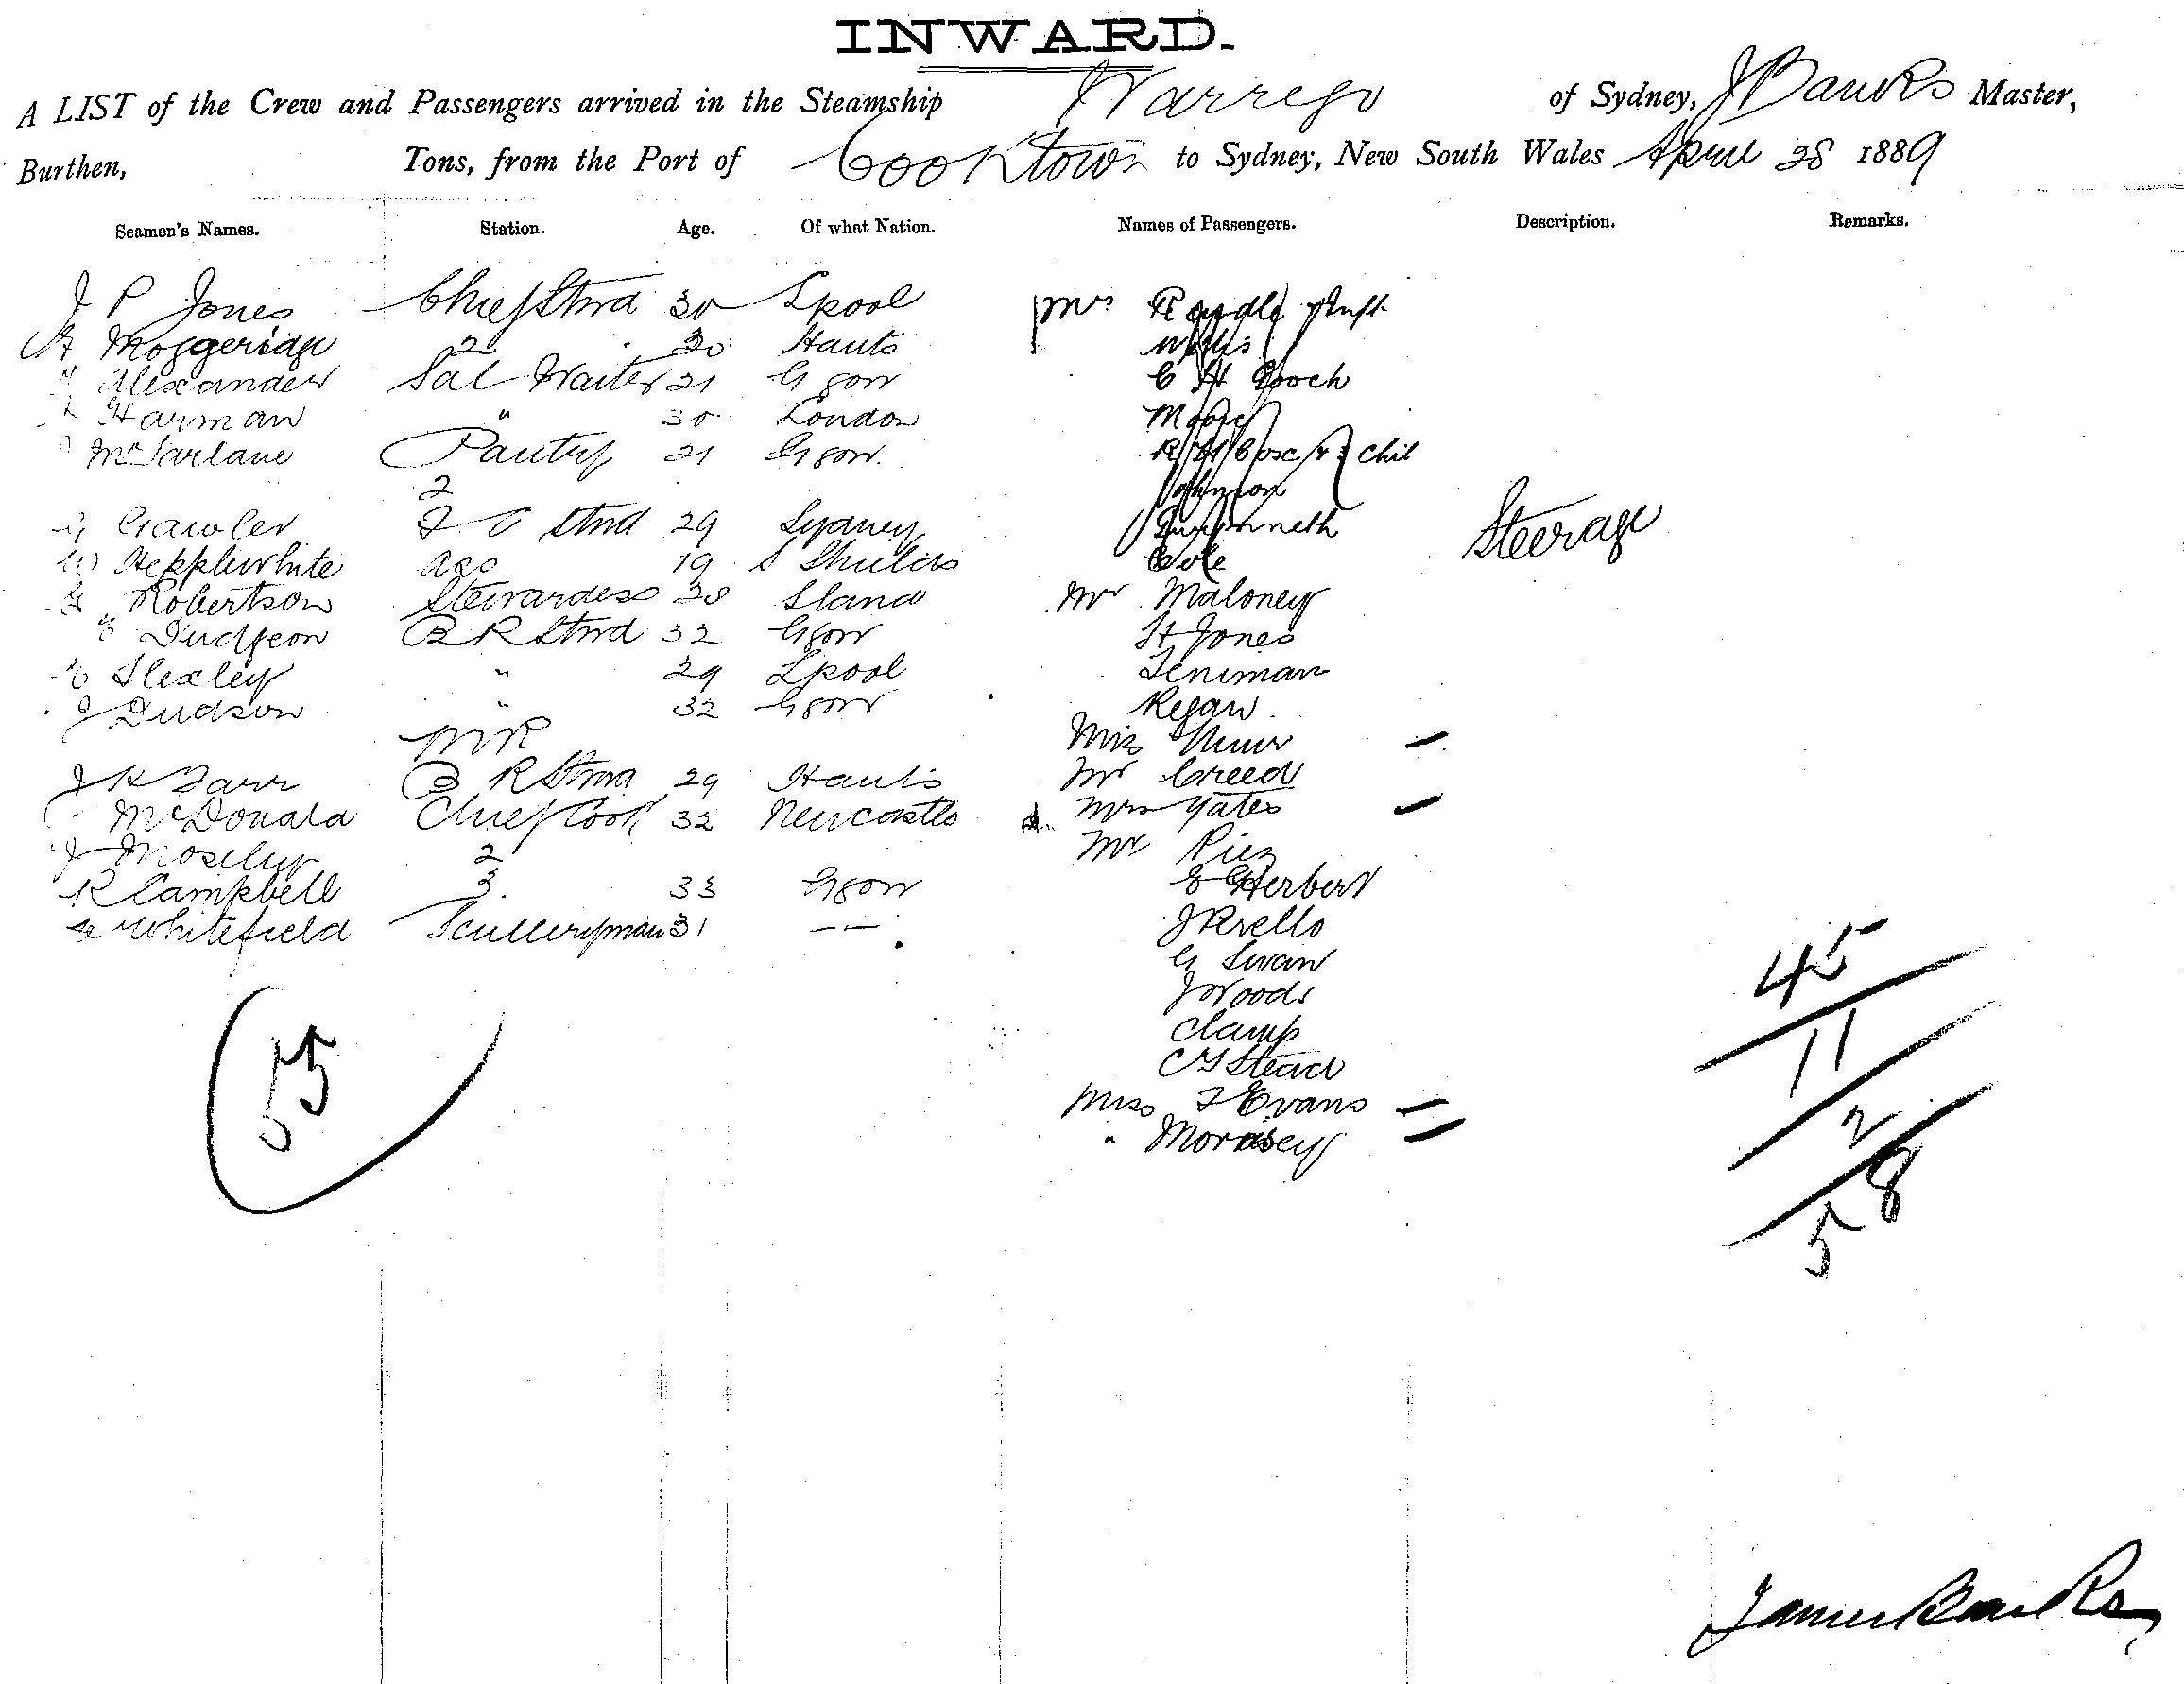 INWARD.
A LIST of the Crew and Passengers arrived in the Steamship Warrego of Sydney, J Banks Master,
Burthen, Tons, from the Port of Cooktown to Sydney, New South Wales April 28 1889
Seamen's Names. Station. Age. Of what Nation. Names of Passengers. Description. Remarks.
J P Jones Chief Stwd 30 Lpool Mrs Randle
Moggeridge 2 30 Hants
Alexander Sal Waiter 21 G gow C H Gooch
Harman " 30 London Moore
McFarlane Pantry 21 G gow. chil
2 Johnson
Crawler 2 C Stwd 29 Sydney Steerage
W Hepplewhite 19 S Shields Cole
Robertson Stewardess 30 Sland Mr Maloney
Dudgeon B R Stwd 32 Ggow H Jones
Flexley " 29 Lpool Feniman
J Dudson " 32 Ggow Regan
M R Miss
J H Farr B R Stwd 29 Hants Mr Creed
McDonald Chief Cook 32 Newcastle Mrs Yates
J Mosely 2 Mr
R Campbell 3. 33 Ggow E Herbert
Whitefield Sculleryman 31 — — J Revello
G Swan
J Woods
Clamp
Stead
Miss F Evans
" Morrisey
55
45
11
2
58
James Banks